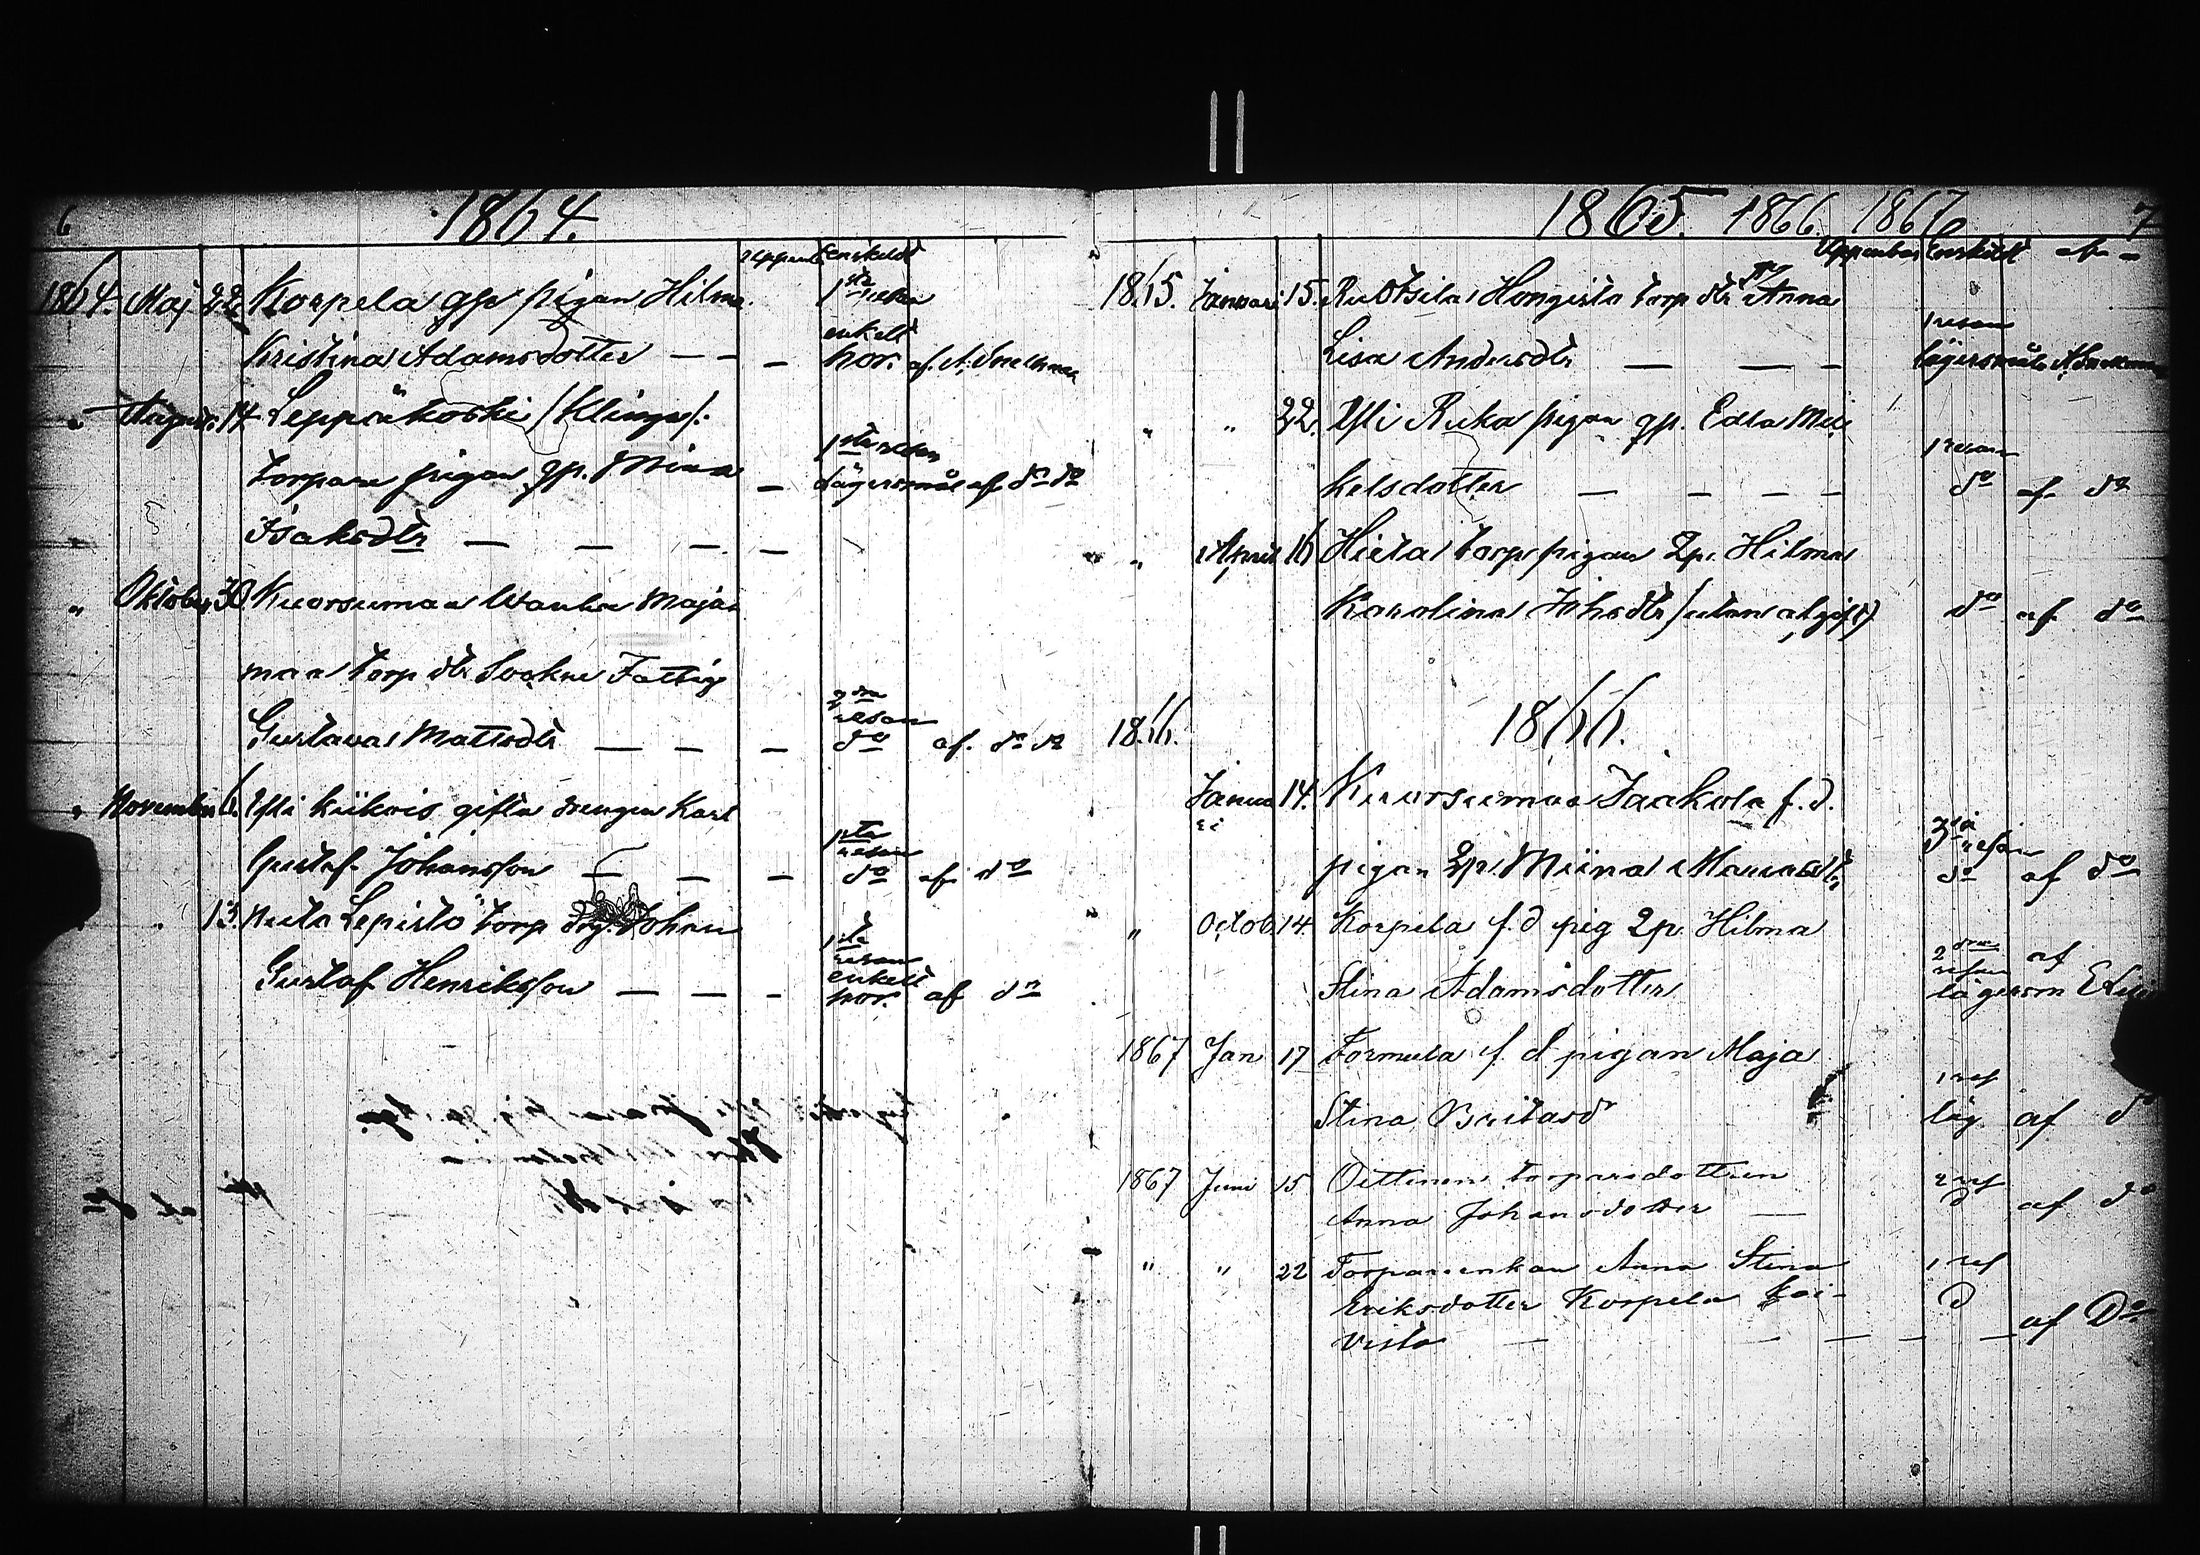 6
1864.
Uppenb. Enskeldt
1864. Maj 22. Korpela gp pigan Hilma 1sta resan
Kristina Adamsdotter — — — enkelt hor. af A. Snellman
" August. 14 Leppäkoski /Klinga/.
torpare pigan gp. Miina — 1sta resan Lägersmål af do do
Isaksdtr — — — —
" Oktober 30. Kuorsumaa Wanha Maja
maa torp dtr Sockne Fattig
Gustava Mattsdtr — — — 2dra resan do af do do
" November 6. Yli kiikois gifta drengen Karl
Gustaf Johansson — — — 1sta resan do af do
" " 13. Lepistö torp drg. Johan
Gustaf Henriksson — — — 1sta resan enkelt hor. af do
1865. 1866 1867
7
Uppenbar Enskildt af
1865. Januari 15. Ruotsila Hongisto torp dtr Anna
Lisa Andersdtr — — — 1 resan lägersmåls
" " 22. Yli Ruka pigan gp. Edla Mic
helsdotter — — — — 1 resan do af do
" April 16 Hieta torp pigan Qp. Hilma
Karolina Johsdtr /utan afgift/ do af do
1866.
1866.
Janua
ri
14. Kuorsumaa Jaakola f.d.
pigan Qp. Miina 3dja resan do af do
" Octob. 14. Korpela f.d pig Qp. Hilma
Stina Adamsdotter 2dra resan lägersm af
1867 Jan 17 Formula f. d pigan Maja
Stina Britasdr 1 res läg. af do
1867 Juni 15 Oittinen torparedottren
Anna Johansdotter — 2 res d af do
" " 22 Torpareenkan Anna Stina 1 res
Eriksdotter Korpela Koi- d
visto — — — — — af Do